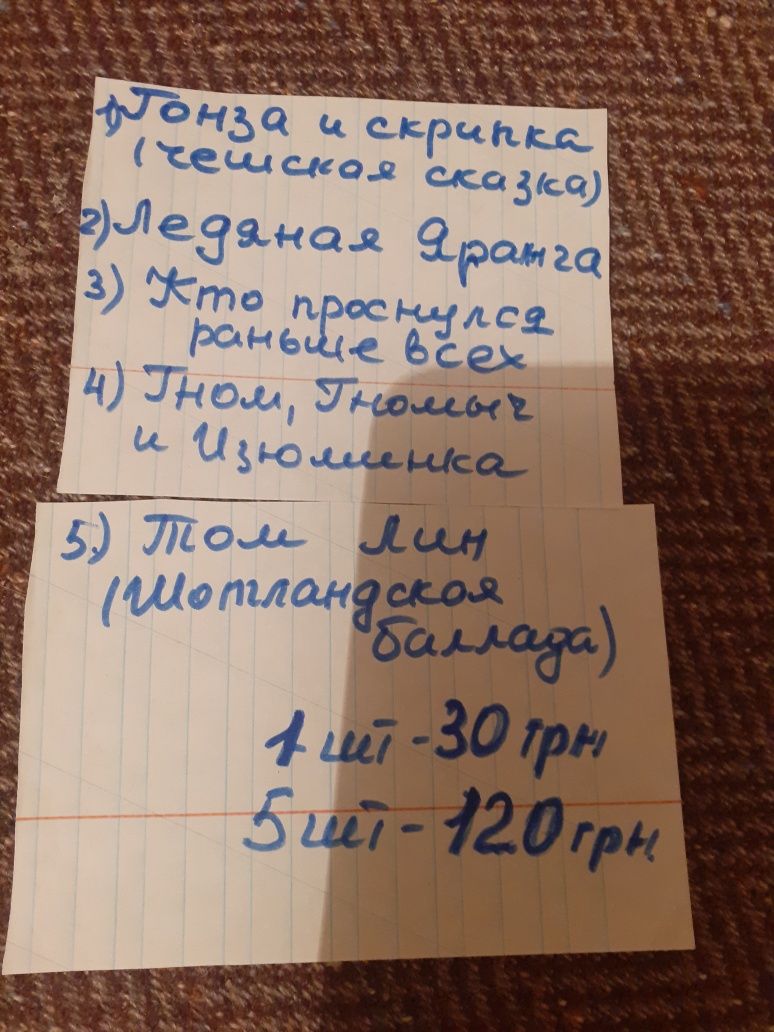 1) Гонза и скрипка
(чешская сказка)
2) Ледяная Яранга
3) Кто проснулся
раньше всех
4) Гном, Гномыч
и Изюминка
5.) Том Лин
(Шотландская
баллада)
1 шт - 30 грн
5 шт - 120 грн